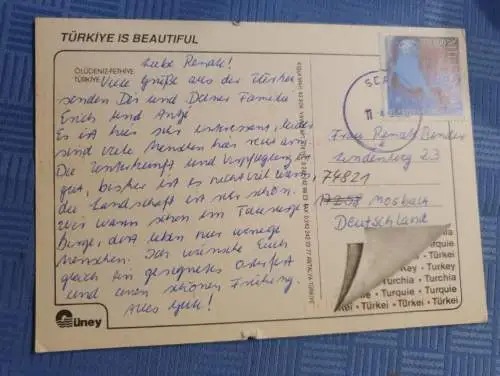 TÜRKİYE IS BEAUTIFUL
ÖLÜDENİZ-FETHİYE
TÜRKİYE
Liebe Renate!
Viele Grüße aus der Türkei
senden Dir und Deiner Familie
Erich und Antje
Es ist hier sehr interessant, leider
sind viele Menschen hier
Die Unterkunft und Verpflegung ist
gut, bisher ist es nicht viel warm,
die Landschaft ist sehr schön.
wir waren schon im Taurusge-
birge, dort leben nur wenige
Menschen. Ich wünsche Euch
gleich ein gesegnetes Osterfest
und einen schönen Frühling.
Alles Gute!
Frau Renate Bender
Lindenberg 23
74821
17258 Mosbach
Deutschland
Güney
Turquie
Türkei
Turkey
Turchia
Turquie
Türkei